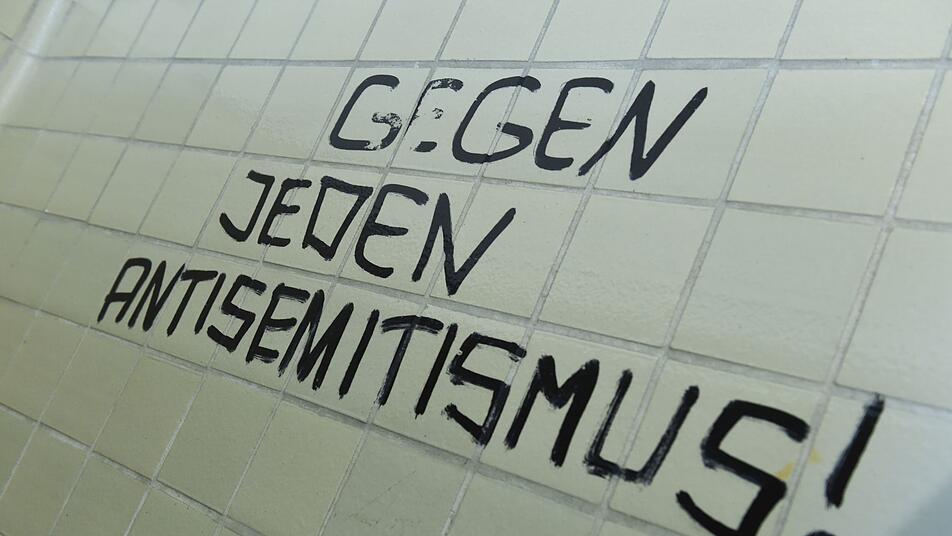 GEGEN
JEDEN
ANTISEMITISMUS!